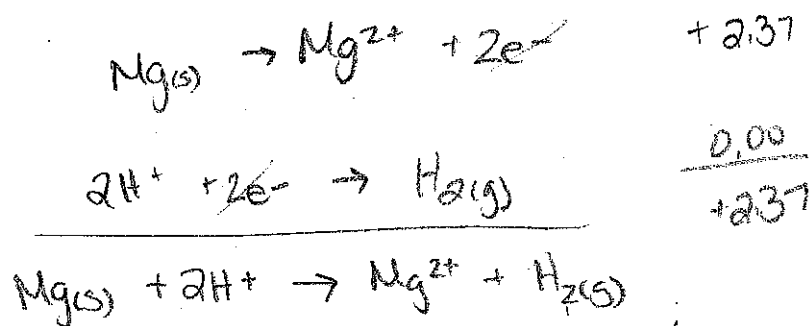 Mg(s) → Mg²⁺ + 2e⁻ +2.37
2H⁺ + 2e⁻ → H₂(g) 0.00
+2.37
Mg(s) + 2H⁺ → Mg²⁺ + H₂(g)